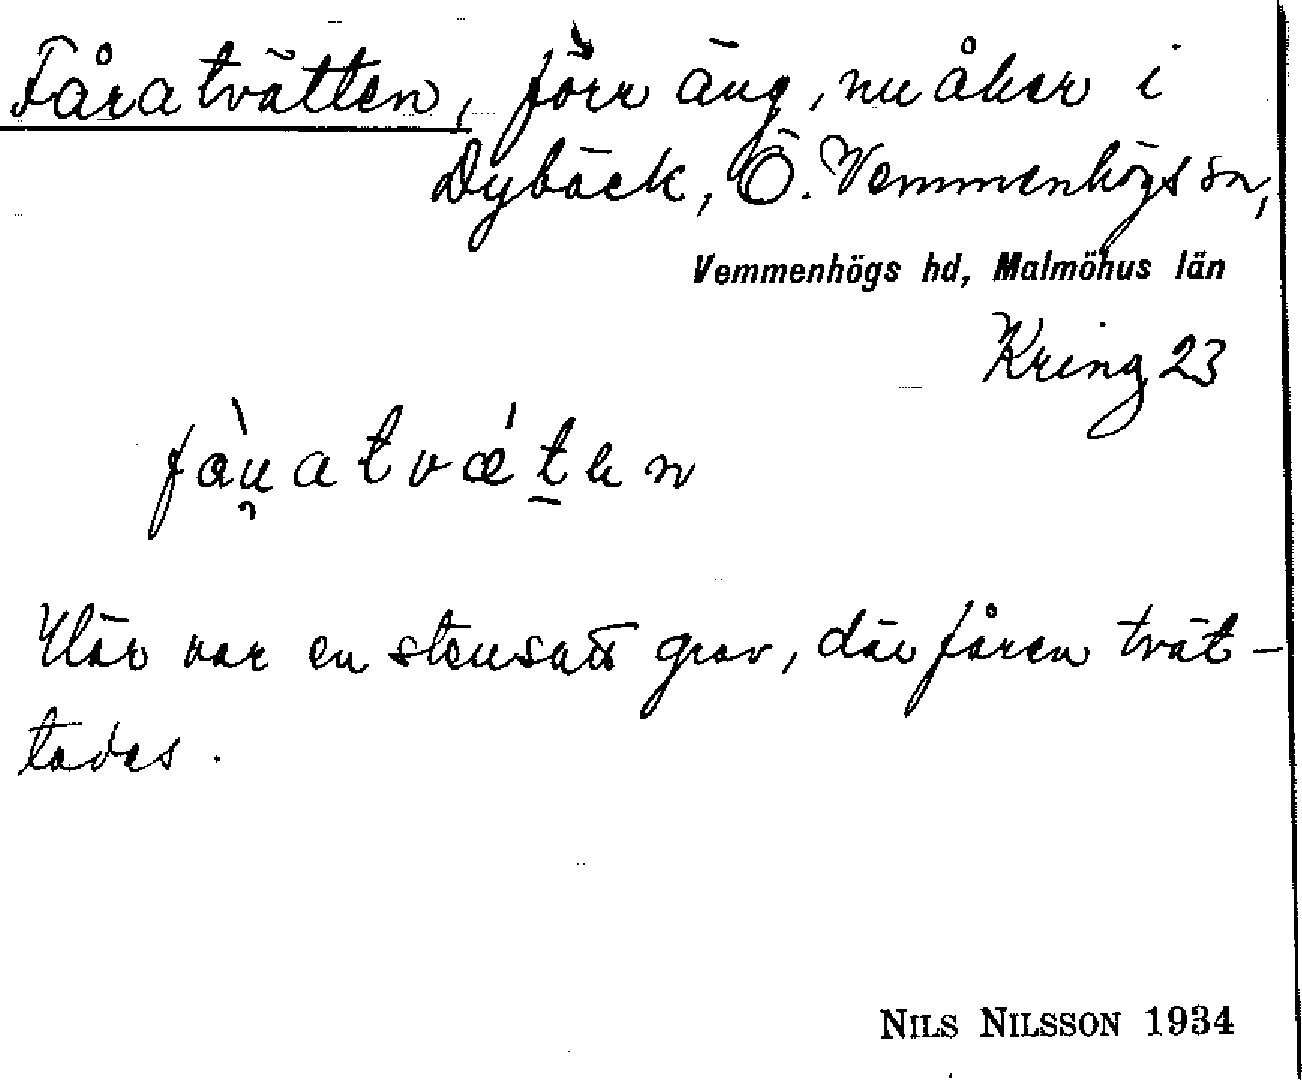 Fåratvätten, förr äng, nu åker i
Dybäck, Ö. Vemmenhögs sn,
Vemmenhögs hd, Malmöhus län
Kring 23
Här var en stensatt grav, där fåren tvät-
tades.
NILS NILSSON 1934